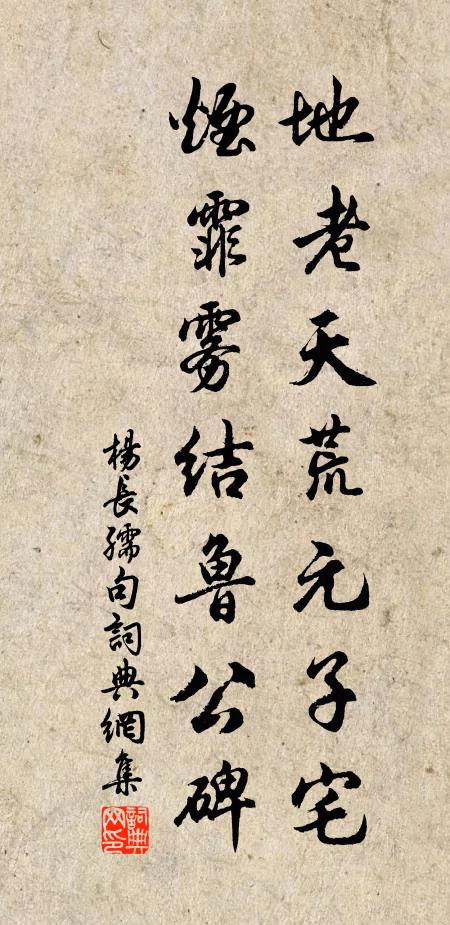 地老天荒元子宅
煙霏雾結魯公碑
楊長孺句詞典網集
詞典网印